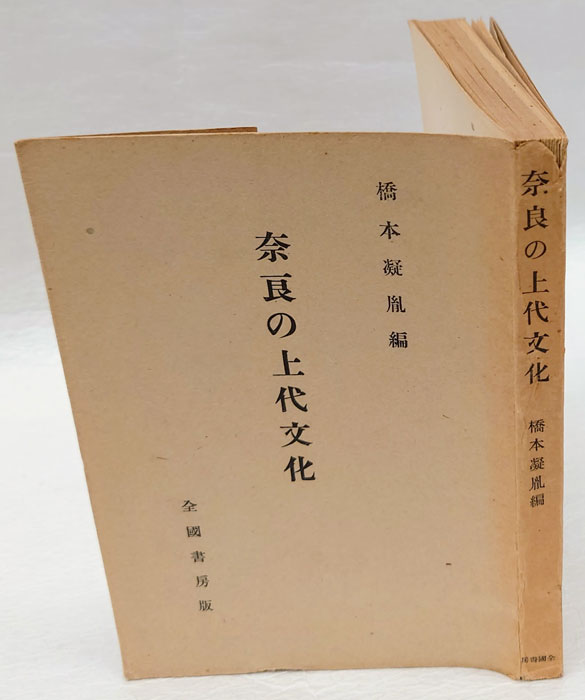 橋本凝胤編
奈良の上代文化
全國書房版
奈良の上代文化
橋本凝胤編
全國書房